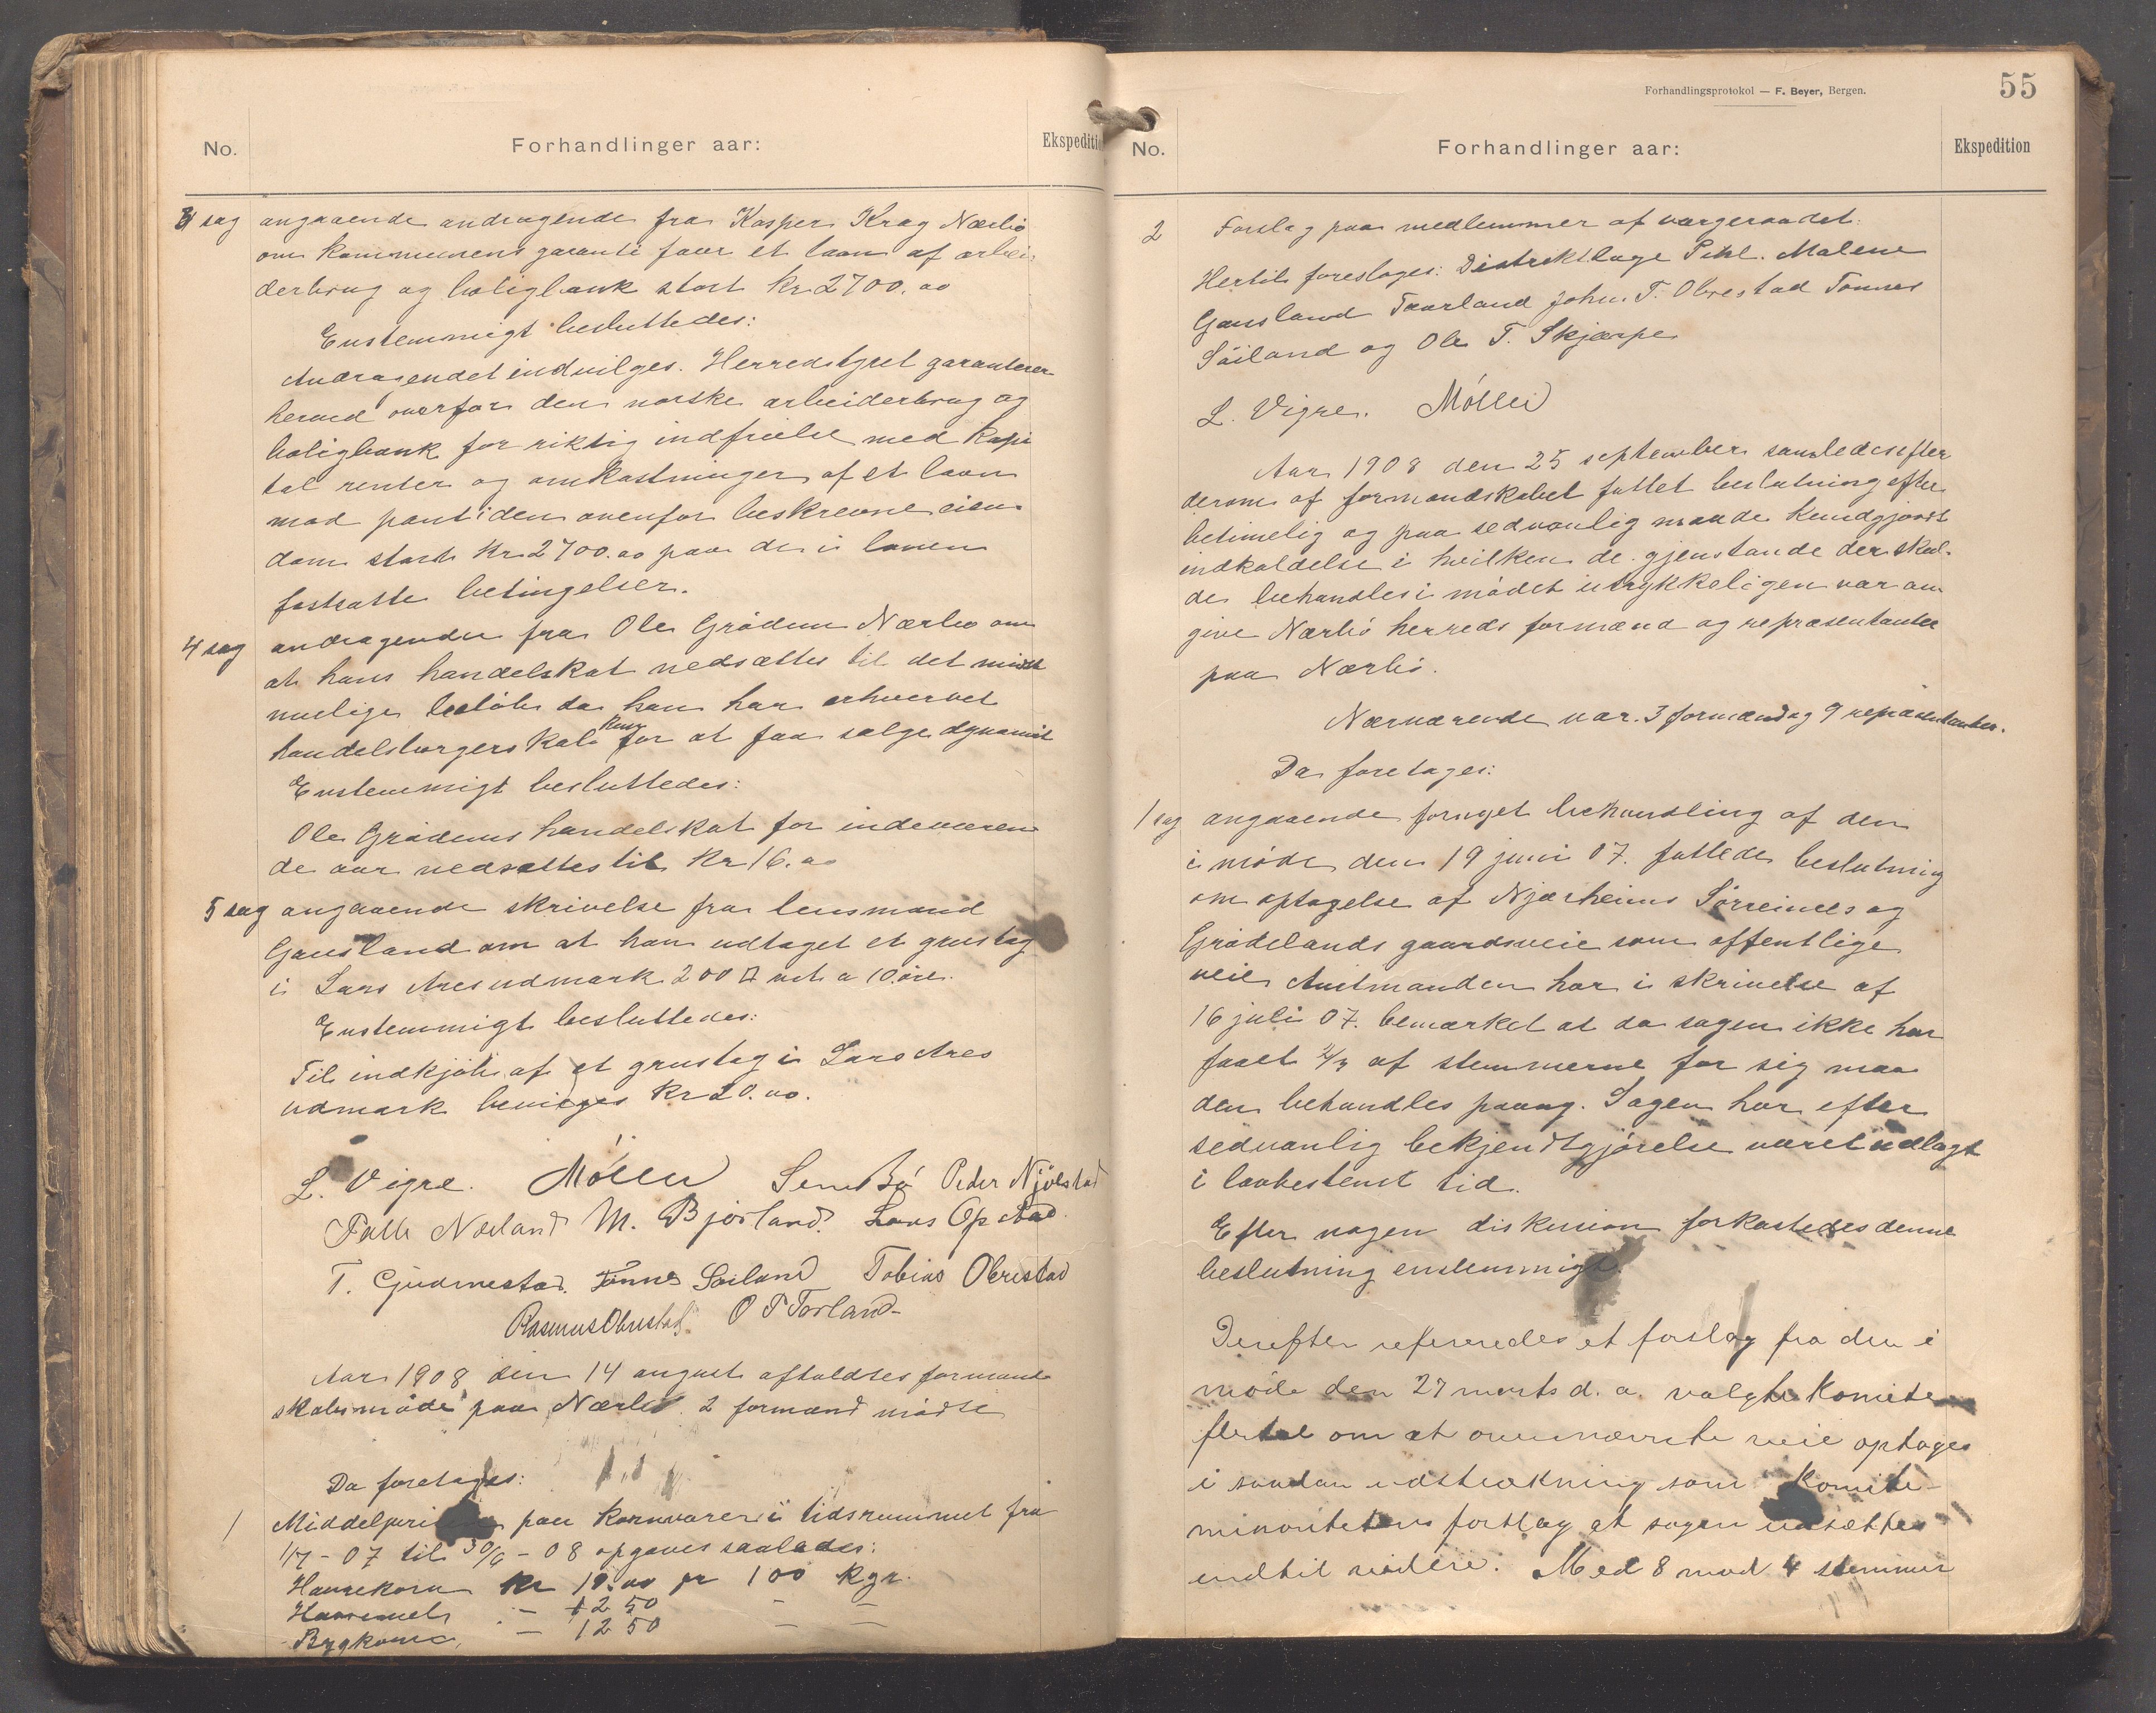 No.
Forhandlinger aar:
Ekspeditio
3 sag angaaende andragende fra Kasper Krag Nærbø
om kommunens garanti faar et laan af arbei
derbrug og boligbank stort kr 2700.00
Enstemmigt besluttedes:
Andragendet indvilges. Herredstyret garanterer
herved overfor den norske arbeiderbrug og
boligbank for riktig indfrielse med kapi
tal renter og omkostninger af et laan
mod pant i den ovenfor beskrevne eien
dom stort kr 2700.00 paa de i loven
fastsatte betingelser.
4 sag andragende fra Ole Grødem Nærbø om
at hans handelskat nedsættes til det mindst
mulige beløb da han har erhvervet
handelsborgerskab kun for at faa sælge dynamit
Enstemmigt besluttedes:
Ole Grødems handelskat for indeværen
de aar nedsættes til kr 16.00
5 sag angaaende skrivelse fra lensmand
Gausland om at han udtaget et grustag
i Lars Aresudmark 200 □ mt a 10 øre.
Enstemmigt besluttedes:
Til indkjøb af et grustag i Lars Ares
udmark bevilges kr 20.00.
L. Vigre. Møller Sem Bø Peder Njølstad
Palle Nærland M. Bjorland. Lars Opstad
T. Gjudmestad. Tønnes Søiland Tobias Obrestad
Rasmus Obrestad. O P Torland
Aar 1908 den 14 august afholdtes formand
skabsmøde paa Nærbø. 2 formænd mødte
Da foretages:
1 paa kornvarer i tidsrummet fra
1/7 - 07 til 30/6 - 08 opgaves saaledes:
Havrekorn kr 10.00 pr 100 kgr.
Havremel - 12 50 - -
Bygkorn - 12 50 - -
Forhandlingsprotokol — F. Beyer, Bergen.
55
No.
Forhandlinger aar:
Ekspedition
2 Forslag paa medlemmer af værgeraadet.
Hertil foreslages: Distriktlæge Pihl. Malene
Gausland Taarland John. T. Obrestad Tønnes
Søiland og Ole T. Skjærpe
L. Vigre. Møller
Aar 1908 den 25 september samledes efter
derom af formandskabet fattet beslutning efter
betimelig og paa sedvanlig maade kundgjordt
indkaldelse i hvilken de gjenstande der skul-
de behandles i mødet utrykkeligen var an
give Nærbø herreds formænd og repræsentanter
paa Nærbø.
Nærværende var 3 formænd og 9 repræsentanter.
Da foretages:
1 sag angaaende fornyet behandling af den
i møde den 19 juni 07. fattede beslutning
om optagelse af Njærheims Sørreimes og
Grødelands gaardsveie som offentlige
veie Amtmanden har i skrivelse af
16 juli 07. bemærket at da sagen ikke har
faaet 2/3 af stemmerne for sig maa
den behandles paany. Sagen har efter
sedvanlig bekjendtgjørelse været udlagt
i lovbestemt tid.
Efter nogen diskusion forkastedes denne
beslutning enstemmigt.
Derefter refereredes et forslag fra den i
møde den 27 marts d. a. valgte komite
flertal om at ovennævnte veie optages
i saadan udstrækning som komite-
minoritetens forslag at sagen udsættes
indtil videre. Med 8 mod 4 stemmer